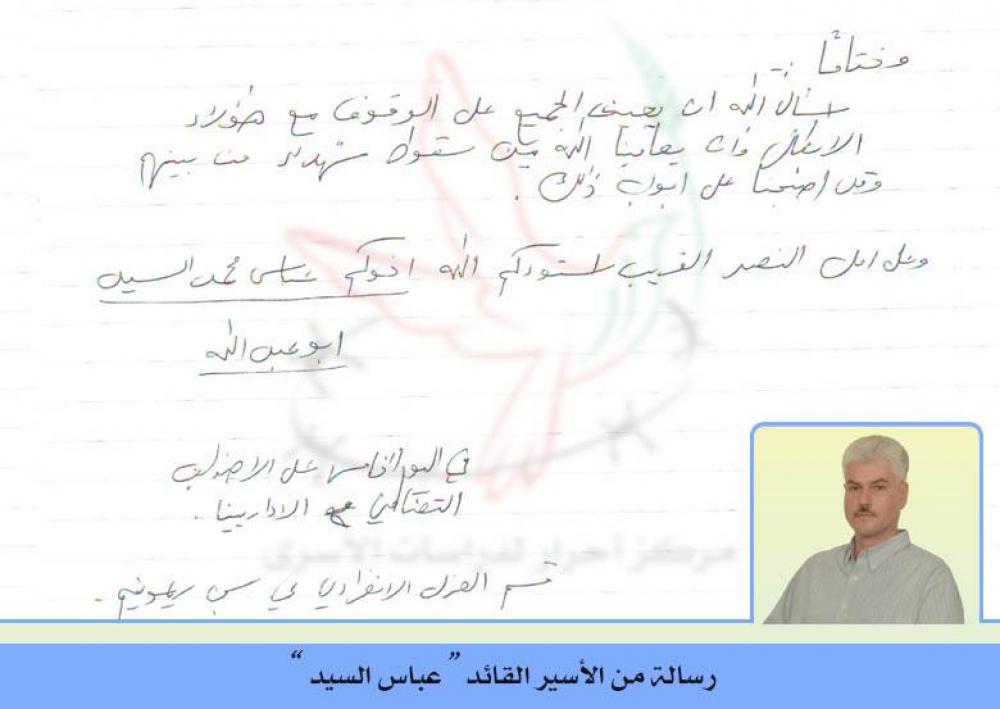 وختاماً :-
اسأل الله ان يعين الجميع على الوقوف مع هؤلاء
الابطال وان يعافينا الله من سقوط شهداء من بينهم
وقد اصبحنا على ابواب ذلك .
وعلى امل النصر القريب استودعكم الله اخوكم عباس محمد السيد
ابو عبد الله
في اليوم الخامس على الاضراب
التضامني مع الاداريين .
قسم العزل الانفرادي في سجن ريمونيم .
مركز أحرار لدراسات الأسرى
رسالة من الأسير القائد " عباس السيد "